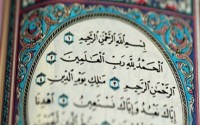 بِسْمِ اللَّهِ الرَّحْمَٰنِ الرَّحِيمِ
الْحَمْدُ لِلَّهِ رَبِّ الْعَالَمِينَ
الرَّحْمَٰنِ الرَّحِيمِ مَالِكِ يَوْمِ الدِّينِ
إِيَّاكَ نَعْبُدُ وَإِيَّاكَ نَسْتَعِينُ اهْدِنَا